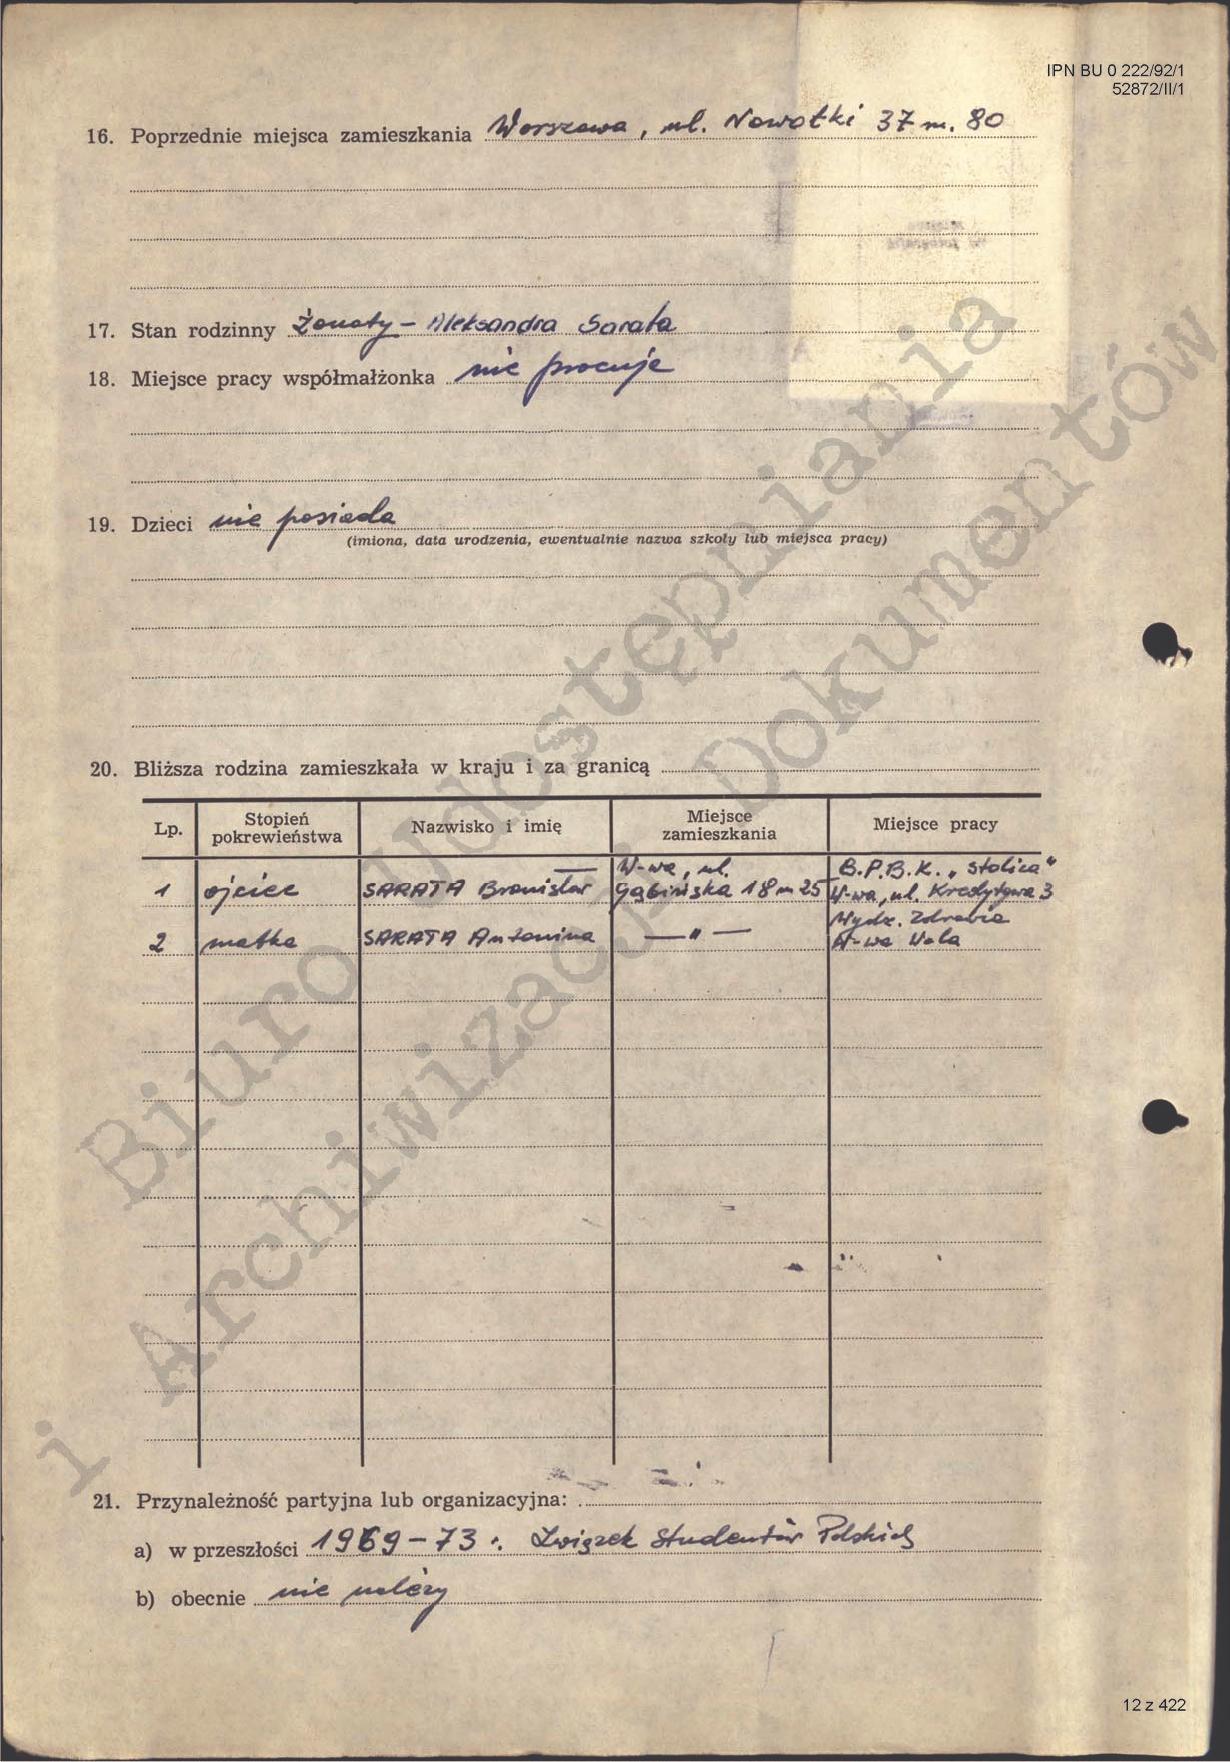 IPN BU 0 222/92/1
52872/II/1
16. Poprzednie miejsca zamieszkania Warszawa, ul. Nowotki 37 m. 80
17. Stan rodzinny Żonaty – Aleksandra Sarata
18. Miejsce pracy współmałżonka nie pracuje
19. Dzieci nie posiada
(imiona, data urodzenia, ewentualnie nazwa szkoły lub miejsca pracy)
20. Bliższa rodzina zamieszkała w kraju i za granicą
Lp. Stopień pokrewieństwa Nazwisko i imię Miejsce zamieszkania Miejsce pracy
W-wa, ul. B.P.B.K. „Stolica"
1 ojciec SARATA Bronisław Gąbińska 18 m 25 W-wa, ul. Kredytowa 3
Wydz. Zdrowia
2 matka SARATA Antonina —"— W-wa Wola
21. Przynależność partyjna lub organizacyjna:
a) w przeszłości 1969–73: Związek Studentów Polskich
b) obecnie nie należy
Biuro Udostępniania
i Archiwizacji Dokumentów
12 z 422